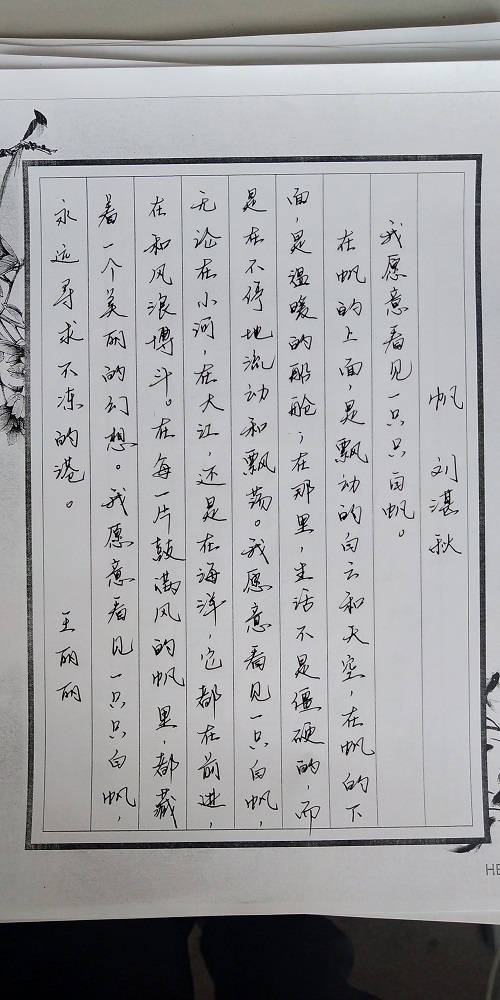 帆 刘湛秋
我愿意看见一只只白帆。
在帆的上面，是飘动的白云和天空，在帆的下
面，是温暖的船舱，在那里，生活不是僵硬的，而
是在不停地流动和飘荡。我愿意看见一只白帆，
无论在小河，在大江，还是在海洋，它都在前进，
在和风浪博斗。在每一片鼓满风的帆里，都藏
着一个美丽的幻想。我愿意看见一只只白帆，
永远寻求不冻的港。 王丽丽
HE